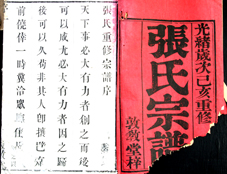 光緒歲次己亥重修
張氏宗譜
敦敘堂梓
張氏重修宗譜序
天下事必大有力者創之而
可以成尤必大有力者因之歸
後可以久苟非其人即擴巴
前僥倖一時冀